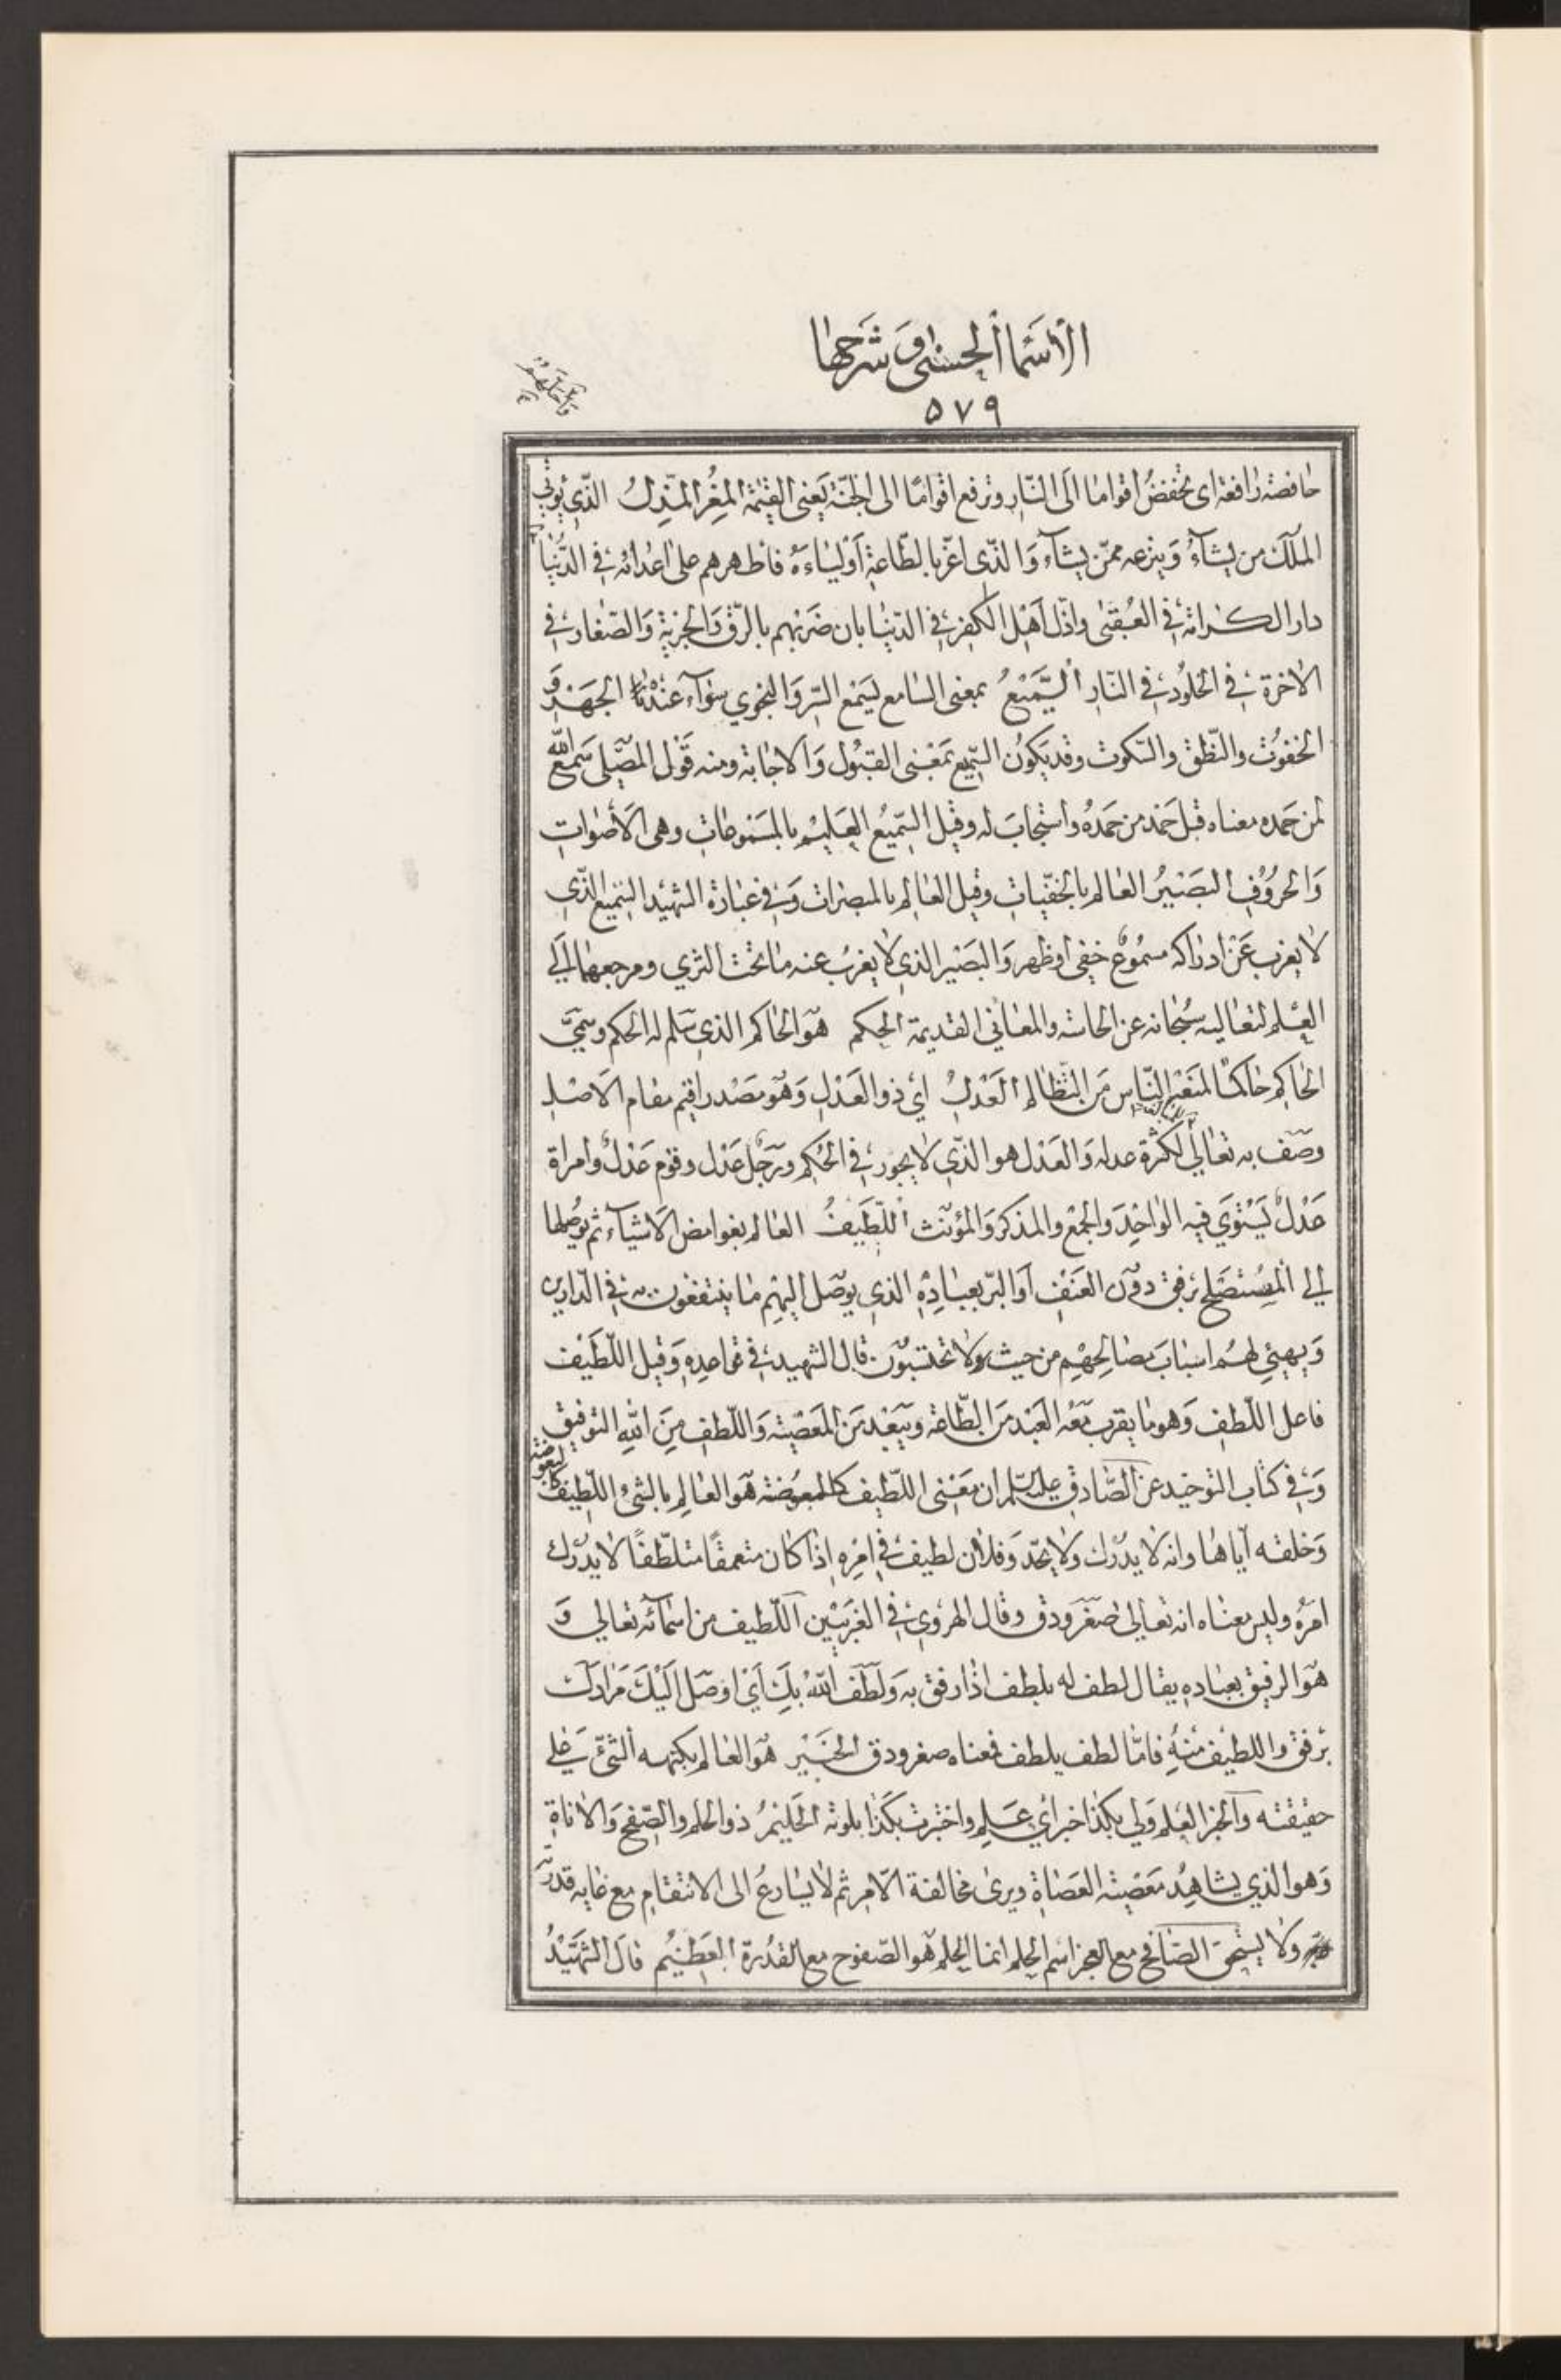 الأسماء الحسنى و شرحها
۵۷۹
وأحلهم
خافضة رافعة اى تخفض اقواما الى النّار وترفع اقوامًا الى الجنّة يَعنى القيٰمة المعِزّ المذِلّ الّذى يؤتى
الملك من يشآءُ وَينزعه ممّن يشآء وَالّذى اعزّ بالطّاعةِ اَوليٰاءَهُ فاظهرهم على اعدائه فى الدّنيا
دار الكرامة فى العُقبىٰ واذلّ اَهْل الكفر فى الدّنيٰا بان ضَربهم بالرّق وَالجزية وَالصّغار فى
الاخرة فى الخلُود فى النّار السَّمِيْعُ بمعنى السّامع يَسمَع السّر وَالنّجوى سَوٰاء عنده الجهَر وَ
الخفوُت والنّطق والسّكوت وقد يكوُن السّميع بمعْنى القبُول وَالاجابة ومنه قَوْل المصَلّى سَمِعَ اللّه
لمن حَمده معناه قبل حَمْد من حَمدهُ واستجابَ له وقيل السّميعُ العَليْم بالمسَموعاتِ وهى الأصوات
وَالحروُف البَصيرُ العٰالم بالخفيّاتِ وقيل العٰالم بالمبصرات وَفى عبٰارة الشّهيْد السّميع الّذى
لا يعزب عَنْ ادراكه مسمُوعٌ خفى او ظهر وَالبَصيْر الذى لا يعزبُ عنه ما تحْت الثرى ومرجعهما الى
العِلم لتعاليه سُبحانه عن الحاسّة والمعانى القديمة الحكم هوَ الحاكم الذى سَلم له الحكم وسمّىَ
الحاكِم حاكمًا لمنَعْه النّاس مَن التّظالم العَدْلُ اىْ ذو العَدْل وَهوَ مَصْدر اقيم مقام الاَصْل
وصَف به تعٰالىٰ للمبالغة لكثرة عدله وَالعَدْل هو الذّى لا يجور فى الحُكم ورَجُل عَدْل وقوْم عَدْلٌ وامراة
عَدْلٌ يَسْتوَى فيه الوٰاحِدَ وَالجمْع والمذكر وَالمؤنّث اللّطَيفُ العٰالم بغوامض الاَشيٰآء ثم يوُصِلها
الى المسُتصَلح برفق دوُن العَنف اَو البرّ بعبٰادِهِ الّذى يوُصل اليْهم ما ينتفعون به فى الدّارين
وَيهيّئ لهُم اسبٰابَ مصَالِحهْم من حيث لا تحتسبُون قال الشّهيد فى قواعدِهِ وَقيل اللّطَيف
فاعل اللّطف وَهو ما يقرب معَهُ العَبْد مَن الطّاعة ويبَعْد مَن المعَصْية وَاللّطف مِنَ اللّهِ التّوفيق
وَفى كتٰاب التّوحيد عن الصّادق عليه السّلم ان معَنى اللّطيف كالبعوضة هو العٰالِم بالشىُ اللّطيف كالبعوضة
وَخلقه ايّاها وانه لا يدْرك وَلا يحَدّ وَفلان لطيف فى امْرِهِ اِذا كٰان متعمقًا متلطّفًا لا يدْرك
امَرهُ وليس معناه انه تعٰالى صَغَر ودق وقال الهروى فى الغريَبيْن اَللّطيف من اسمائه تعالى وَ
هوَ الرفيق بعبٰادهِ يقال لطف له يلطف اذٰا رفق بهَ وَلَطَف اَللّهُ بكَ اَىْ اوَصَل اَليْكَ مَرٰادك
برفق واللطيف منْهُ فامّا لطف يلطف فمعناه صغر ودق الخبَيْر هوَ العٰالم بكنهه الشّئ علىٰ
حقيقته وَالخبر العِلم وَلى بكذٰا خبر اىْ عَلم واختبرت بكذا بلوته الحَليْمُ ذو الحلم والصّفح وَالاناة
وَهو الذى يشٰاهِدُ معَصْية العصَاة ويرىٰ مخالفة الاَمر ثم لا يسٰارعُ الى الانتقٰام مع غايه قدرته
ولا يسْتحقَ الصّافح مع العجز اسْم الحلم انما الحِلم هو الصّفوح مع القُدرة العَظيْم قالَ الشّهَيْدُ